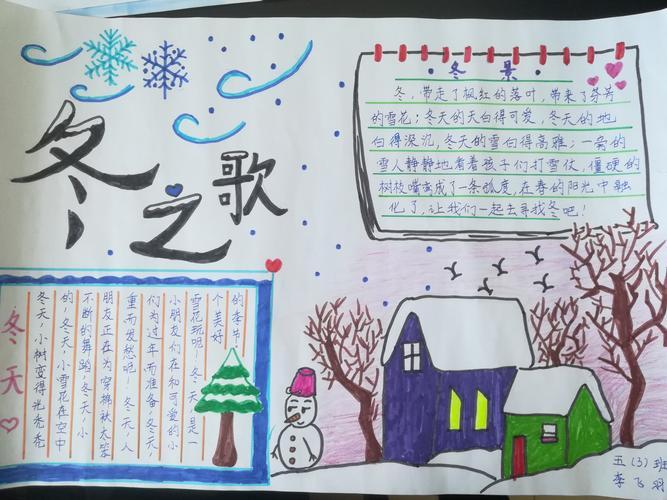 冬之歌
·冬 景·
冬，带走了枫红的落叶，带来了芬芳
的雪花；冬天的天白得可爱，冬天的地
白得深沉，冬天的雪白得高雅；一旁的
雪人静静地看着孩子们打雪仗，僵硬的
树枝嘴变成了一条弧度，在春的阳光中融
化了，让我们一起去寻找冬吧！
冬天
冬天，小树变得光秃秃
的，冬天，小雪花在空中
不断的舞蹈，冬天，小
朋友正在为穿棉袄太笨
重而发愁呢！冬天，人
们为过年而准备，冬天，
小朋友们在和可爱的小
雪花玩呢！冬天，是一
个美好
的季节
五（3）班
李飞